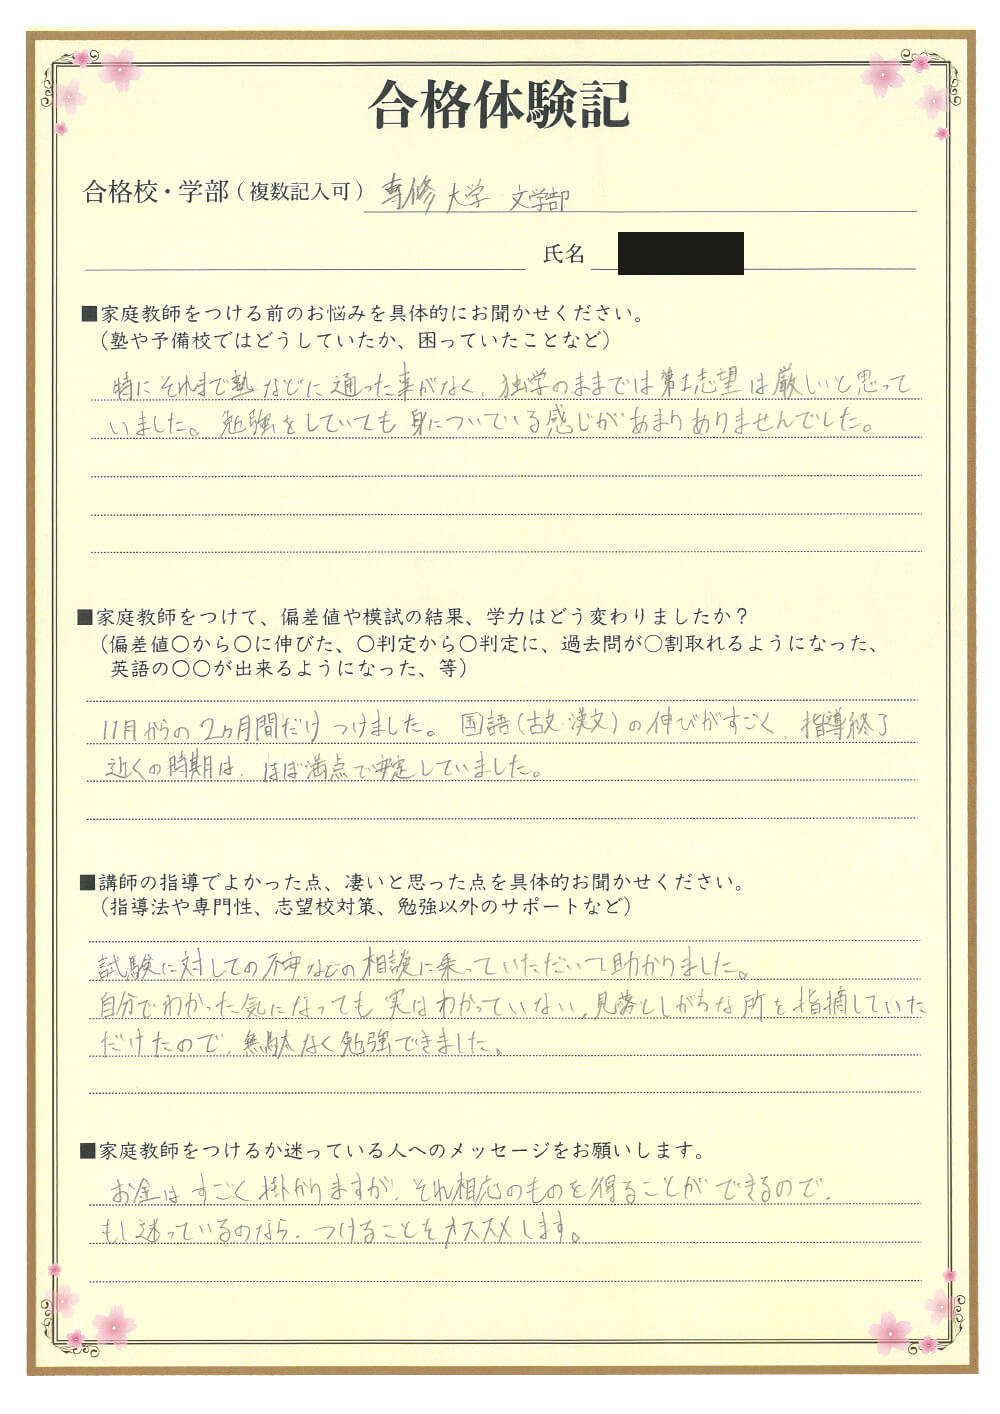 合格体験記
合格校・学部（複数記入可）専修大学 文学部
氏名
■家庭教師をつける前のお悩みを具体的にお聞かせください。
（塾や予備校ではどうしていたか、困っていたことなど）
特にそれまで塾などに通った事がなく、独学のままでは第1志望は厳しいと思って
いました。勉強をしていても身についている感じがあまりありませんでした。
■家庭教師をつけて、偏差値や模試の結果、学力はどう変わりましたか？
（偏差値〇から〇に伸びた、〇判定から〇判定に、過去問が〇割取れるようになった、
英語の〇〇が出来るようになった、等）
11月からの2ヶ月間だけつけました。国語（古文・漢文）の伸びがすごく、指導終了
近くの時期は、ほぼ満点で安定していました。
■講師の指導でよかった点、凄いと思った点を具体的お聞かせください。
（指導法や専門性、志望校対策、勉強以外のサポートなど）
試験に対しての不安などの相談に乗っていただいて助かりました。
自分でわかった気になっても実はわかっていない、見落としがちな所を指摘していた
だけたので、無駄なく勉強できました。
■家庭教師をつけるか迷っている人へのメッセージをお願いします。
お金はすごく掛かりますが、それ相応のものを得ることができるので、
もし迷っているのなら、つけることをオススメします。